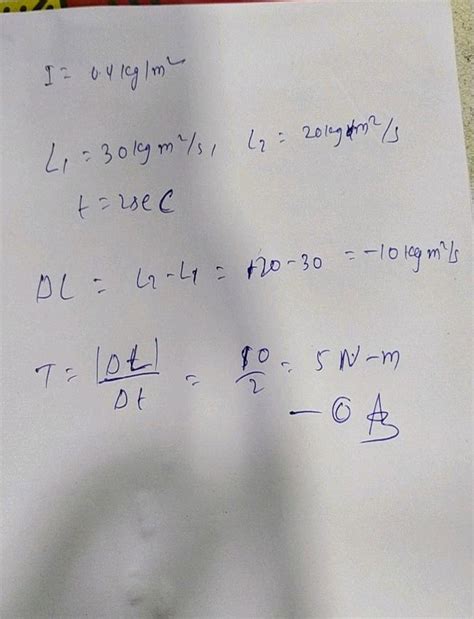 I = 0.4 kg/m²
L₁ = 30 kg m²/s, L₂ = 20 kg m²/s
t = 2 sec
ΔL = L₂ - L₁ = +20 - 30 = -10 kg m²/s
T = |ΔL| / Δt = 10 / 2 = 5 N-m